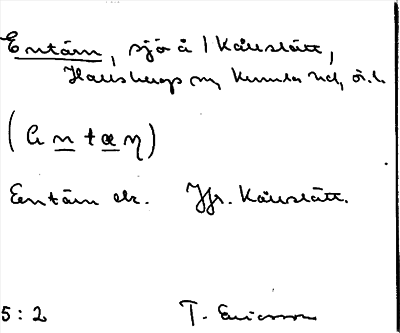 Entärn, sjö å 1 Kårstätt,
Hallsbergs sn, Kumla hd, ö.l.
(e n t æ ŋ)
Eentärn ek. Jfr. Kårstätt.
5:2 T. Ericsson